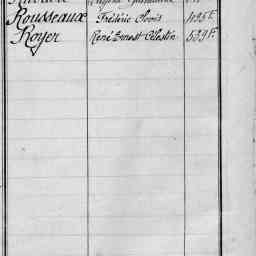 Rousseaux Frédéric Clovis 495F.
Royer René Ernest Célestin 539F.